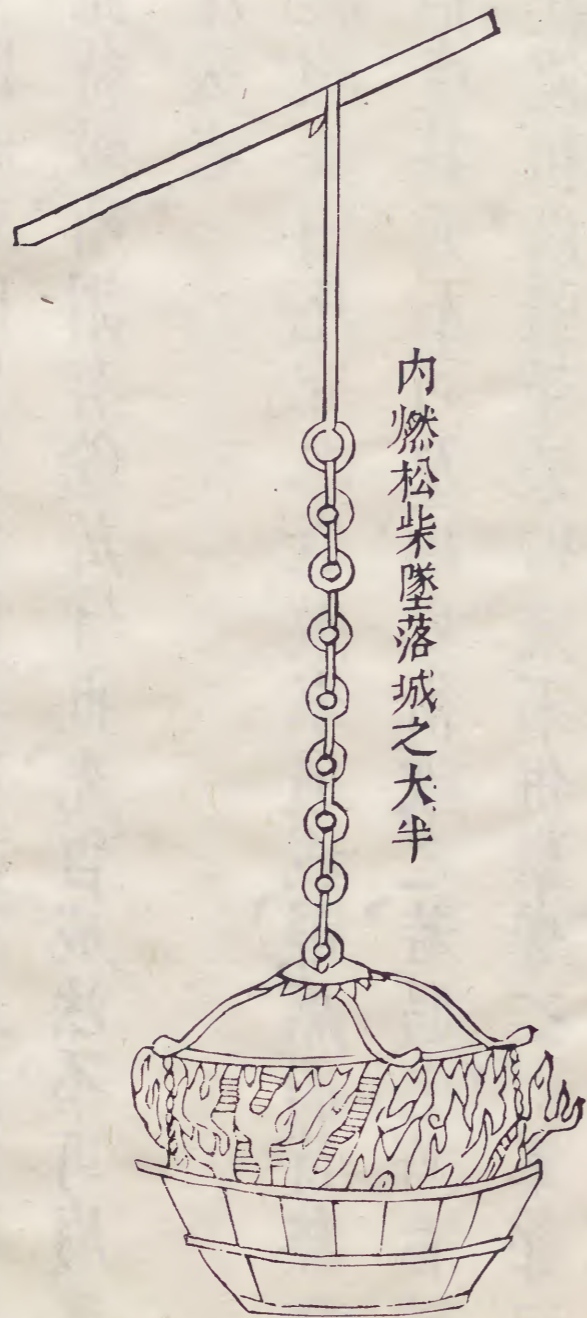 内燃松柴墜落城之大半